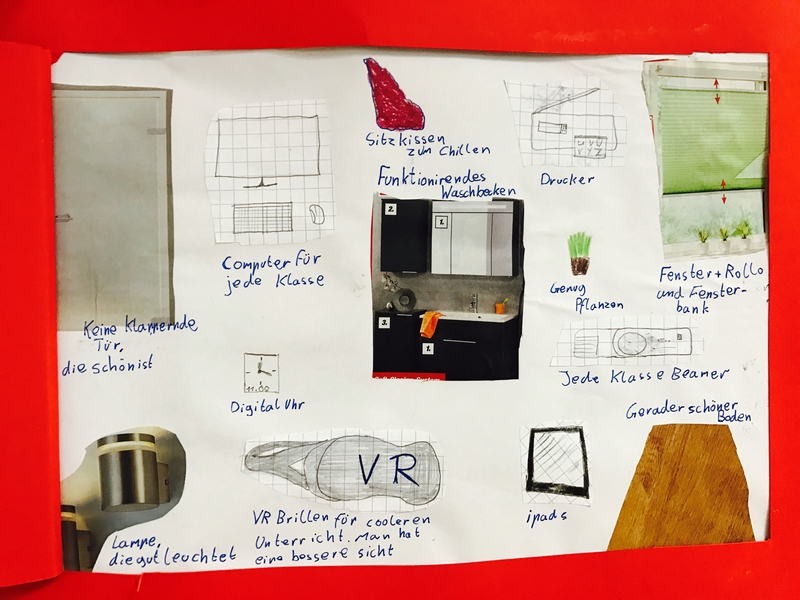 Sitzkissen
zum Chillen
Drucker
U V W
X Y Z
Funktionirendes
Waschbecken
2.
1.
3.
1.
Computer für
jede Klasse
Genug
Pflanzen
Fenster + Rollo
und Fenster-
bank
Keine Klamernde
Tür,
die schön ist
Jede Klasse Beamer
11:00
Digital Uhr
Gerader schöner
Boden
VR
Lampe,
die gut leuchtet
VR Brillen für cooleren
Unterricht. Man hat
eine bessere sicht
ipads